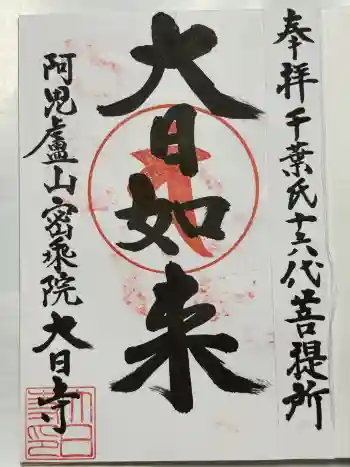 奉拝 千葉氏十六代菩提所
大日如来
阿毘盧山密乗院
大日寺